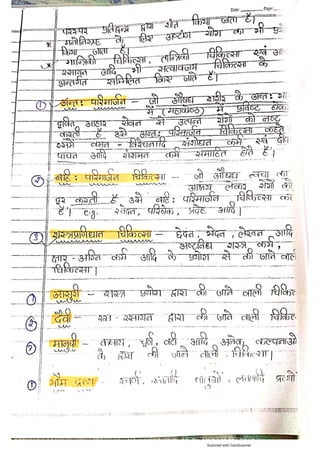 Date: Page:
परस्पर प्रतिद्वन्द द्वारा शांत किया जाता है।
मनोनिग्रह के लिए अष्टांग योग का भी
किया जाता है।
मान्त्रिकी चिकित्सा, तान्त्रिकी चिकित्सा एवं
रसायन आदि भी सत्वावजय चिकित्सा के
अन्तर्गत सम्मिलित किए जाते हैं।
① अन्तः परिमार्जन – जो औषध शरीर के अन्तः
में प्रविष्ट होकर
आहार सेवन से उत्पन्न रोगों को नष्ट
करती है उसे अन्तः परिमार्जन चिकित्सा कहते
इसमें वमन - विरेचनादि संशोधन कर्म एवं
पाचन आदि संशमन कर्म समाहित होते हैं।
② बहिः परिमार्जन चिकित्सा – जो औषध त्वचा का
आश्रय लेकर रोगों को
दूर करती है उसे बहिः परिमार्जन चिकित्सा का
है। e.g. स्वेदन, परिषेक, प्रदेह आदि।
③ शस्त्रप्रणिधान चिकित्सा – छेदन, भेदन, लेखन, आदि
अष्टविध शस्त्र कर्म,
क्षार - अग्नि कर्म आदि के प्रयोग से की जाने वाली
चिकित्सा।
① आसुरी – शस्त्र प्रयोग द्वारा की जाने वाली चिकित्सा
② दैवी – रस - रसायन द्वारा की जाने वाली चिकित्सा
③ मानुषी – चूर्ण, वटी आदि अनेक कल्पनाओं
के द्वारा की जाने वाली चिकित्सा।
① भौम द्रव्य – स्वर्ण,
Scanned with CamScanner